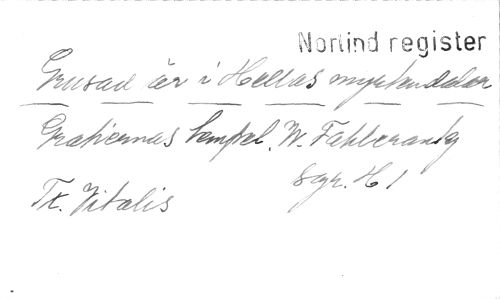 Norlind register
Grusad är i Hellas myrtendalar
Gratiernas tempel. W. Fahlcrantz
Sgr. H 1
Tx. Vitalis